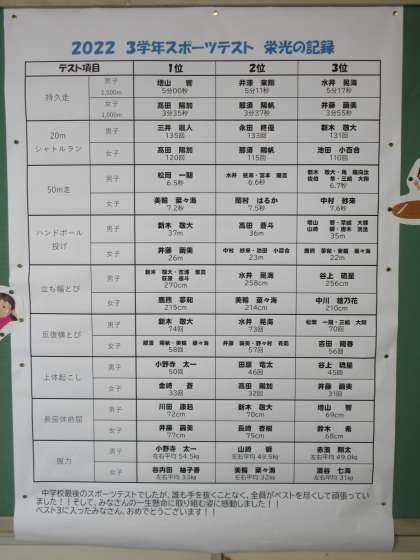 2022 3学年スポーツテスト 栄光の記録
テスト項目 1位 2位 3位
持久走
男子 1,500m 増山 響 5分00秒 井澤 来翔 5分11秒 水井 晃海 5分17秒
女子 1,000m 高田 陽加 3分35秒 那須 陽帆 3分37秒 井藤 繭美 3分55秒
20m シャトルラン
男子 三井 颯人 135回 永田 柊優 133回 新木 敬大 131回
女子 高田 陽加 120回 那須 陽帆 115回 池田 小百合 110回
50m走
男子 松岡 一期 6.5秒 6.6秒 6.7秒
女子 美輪 菜々海 7.2秒 岡村 はるか 7.5秒 中村 紗来 7.6秒
ハンドボール投げ
男子 新木 敬大 37m 高田 蒼斗 36m 35m
女子 井藤 繭美 26m 中村 紗来・池田 小百合 23m 22m
立ち幅とび
男子 270cm 水井 晃海 258cm 谷上 琥星 256cm
女子 鹿熊 夢和 215cm 美輪 菜々海 214cm 中川 綾乃花 210cm
反復横とび
男子 新木 敬大 74回 水井 晃海 73回 70回
女子 那須 陽帆・美輪 菜々海 58回 57回 吉田 陽春 56回
上体起こし
男子 小野寺 太一 50回 田原 竜太 46回 谷上 琥星 45回
女子 金崎 蒼 33回 高田 陽加 32回 井藤 繭美 31回
長座体前屈
男子 川田 康起 72cm 新木 敬大 70cm 増山 響 69cm
女子 井藤 繭美 77cm 長崎 杏樹 75cm 鈴木 希 68cm
握力
男子 小野寺 太一 左右平均 54.5kg 山崎 左右平均 49.5kg 赤濱 翔太 左右平均 49.0kg
女子 谷内田 柚子香 左右平均 33kg 美輪 菜々海 左右平均 32kg 濵谷 七海 左右平均 31kg
中学校最後のスポーツテストでしたが、誰も手を抜くことなく、全員がベストを尽くして頑張っていました!!そして、みなさんの一生懸命に取り組む姿に感動しました!!
ベスト3に入ったみなさん、おめでとうございます!!